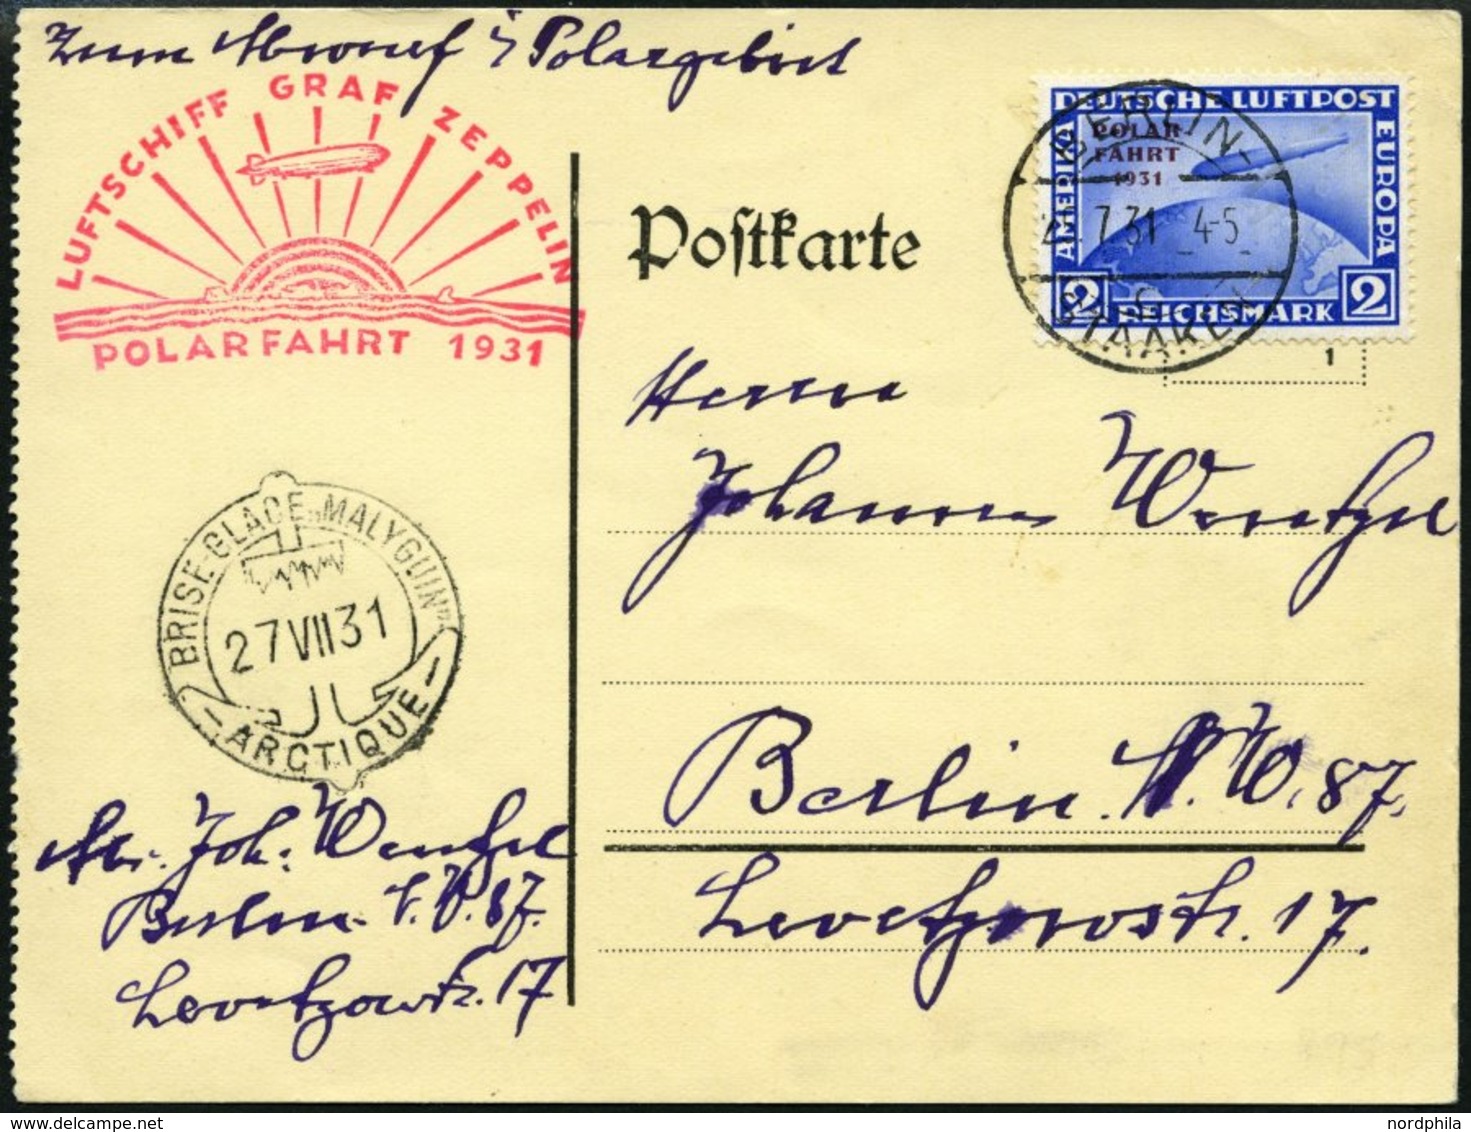 Zum Abwurf i. Polargebiet
LUFTSCHIFF GRAF ZEPPELIN
POLARFAHRT 1931
DEUTSCHE LUFTPOST
AMERIKA
EUROPA
POLAR-
FAHRT
1931
2 REICHSMARK 2
BERLIN-
7.31 4-5
STAAKEN
1
Poſtkarte
Herrn
Johannes Wentzel
Berlin N.W. 87.
Levetzowstr. 17.
BRISE-GLACE „MALYGUIN”
27 VII 31
- ARCTIQUE -
Abs. Joh. Wentzel
Berlin N.W. 87.
Levetzowstr. 17
nordphila